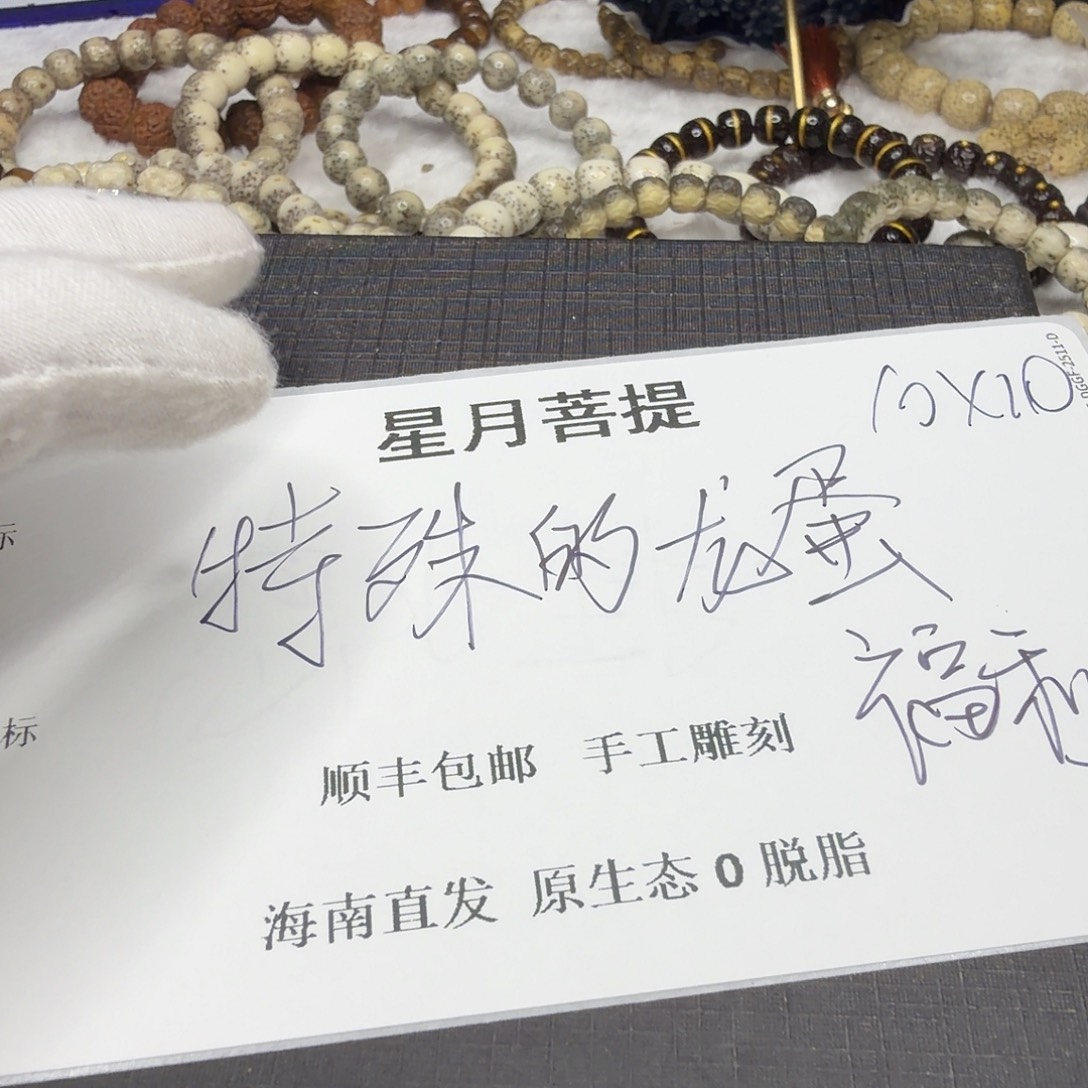 星月菩提
10X10
特殊的龙蛋
福利
标
标
顺丰包邮 手工雕刻
海南直发 原生态 0 脱脂